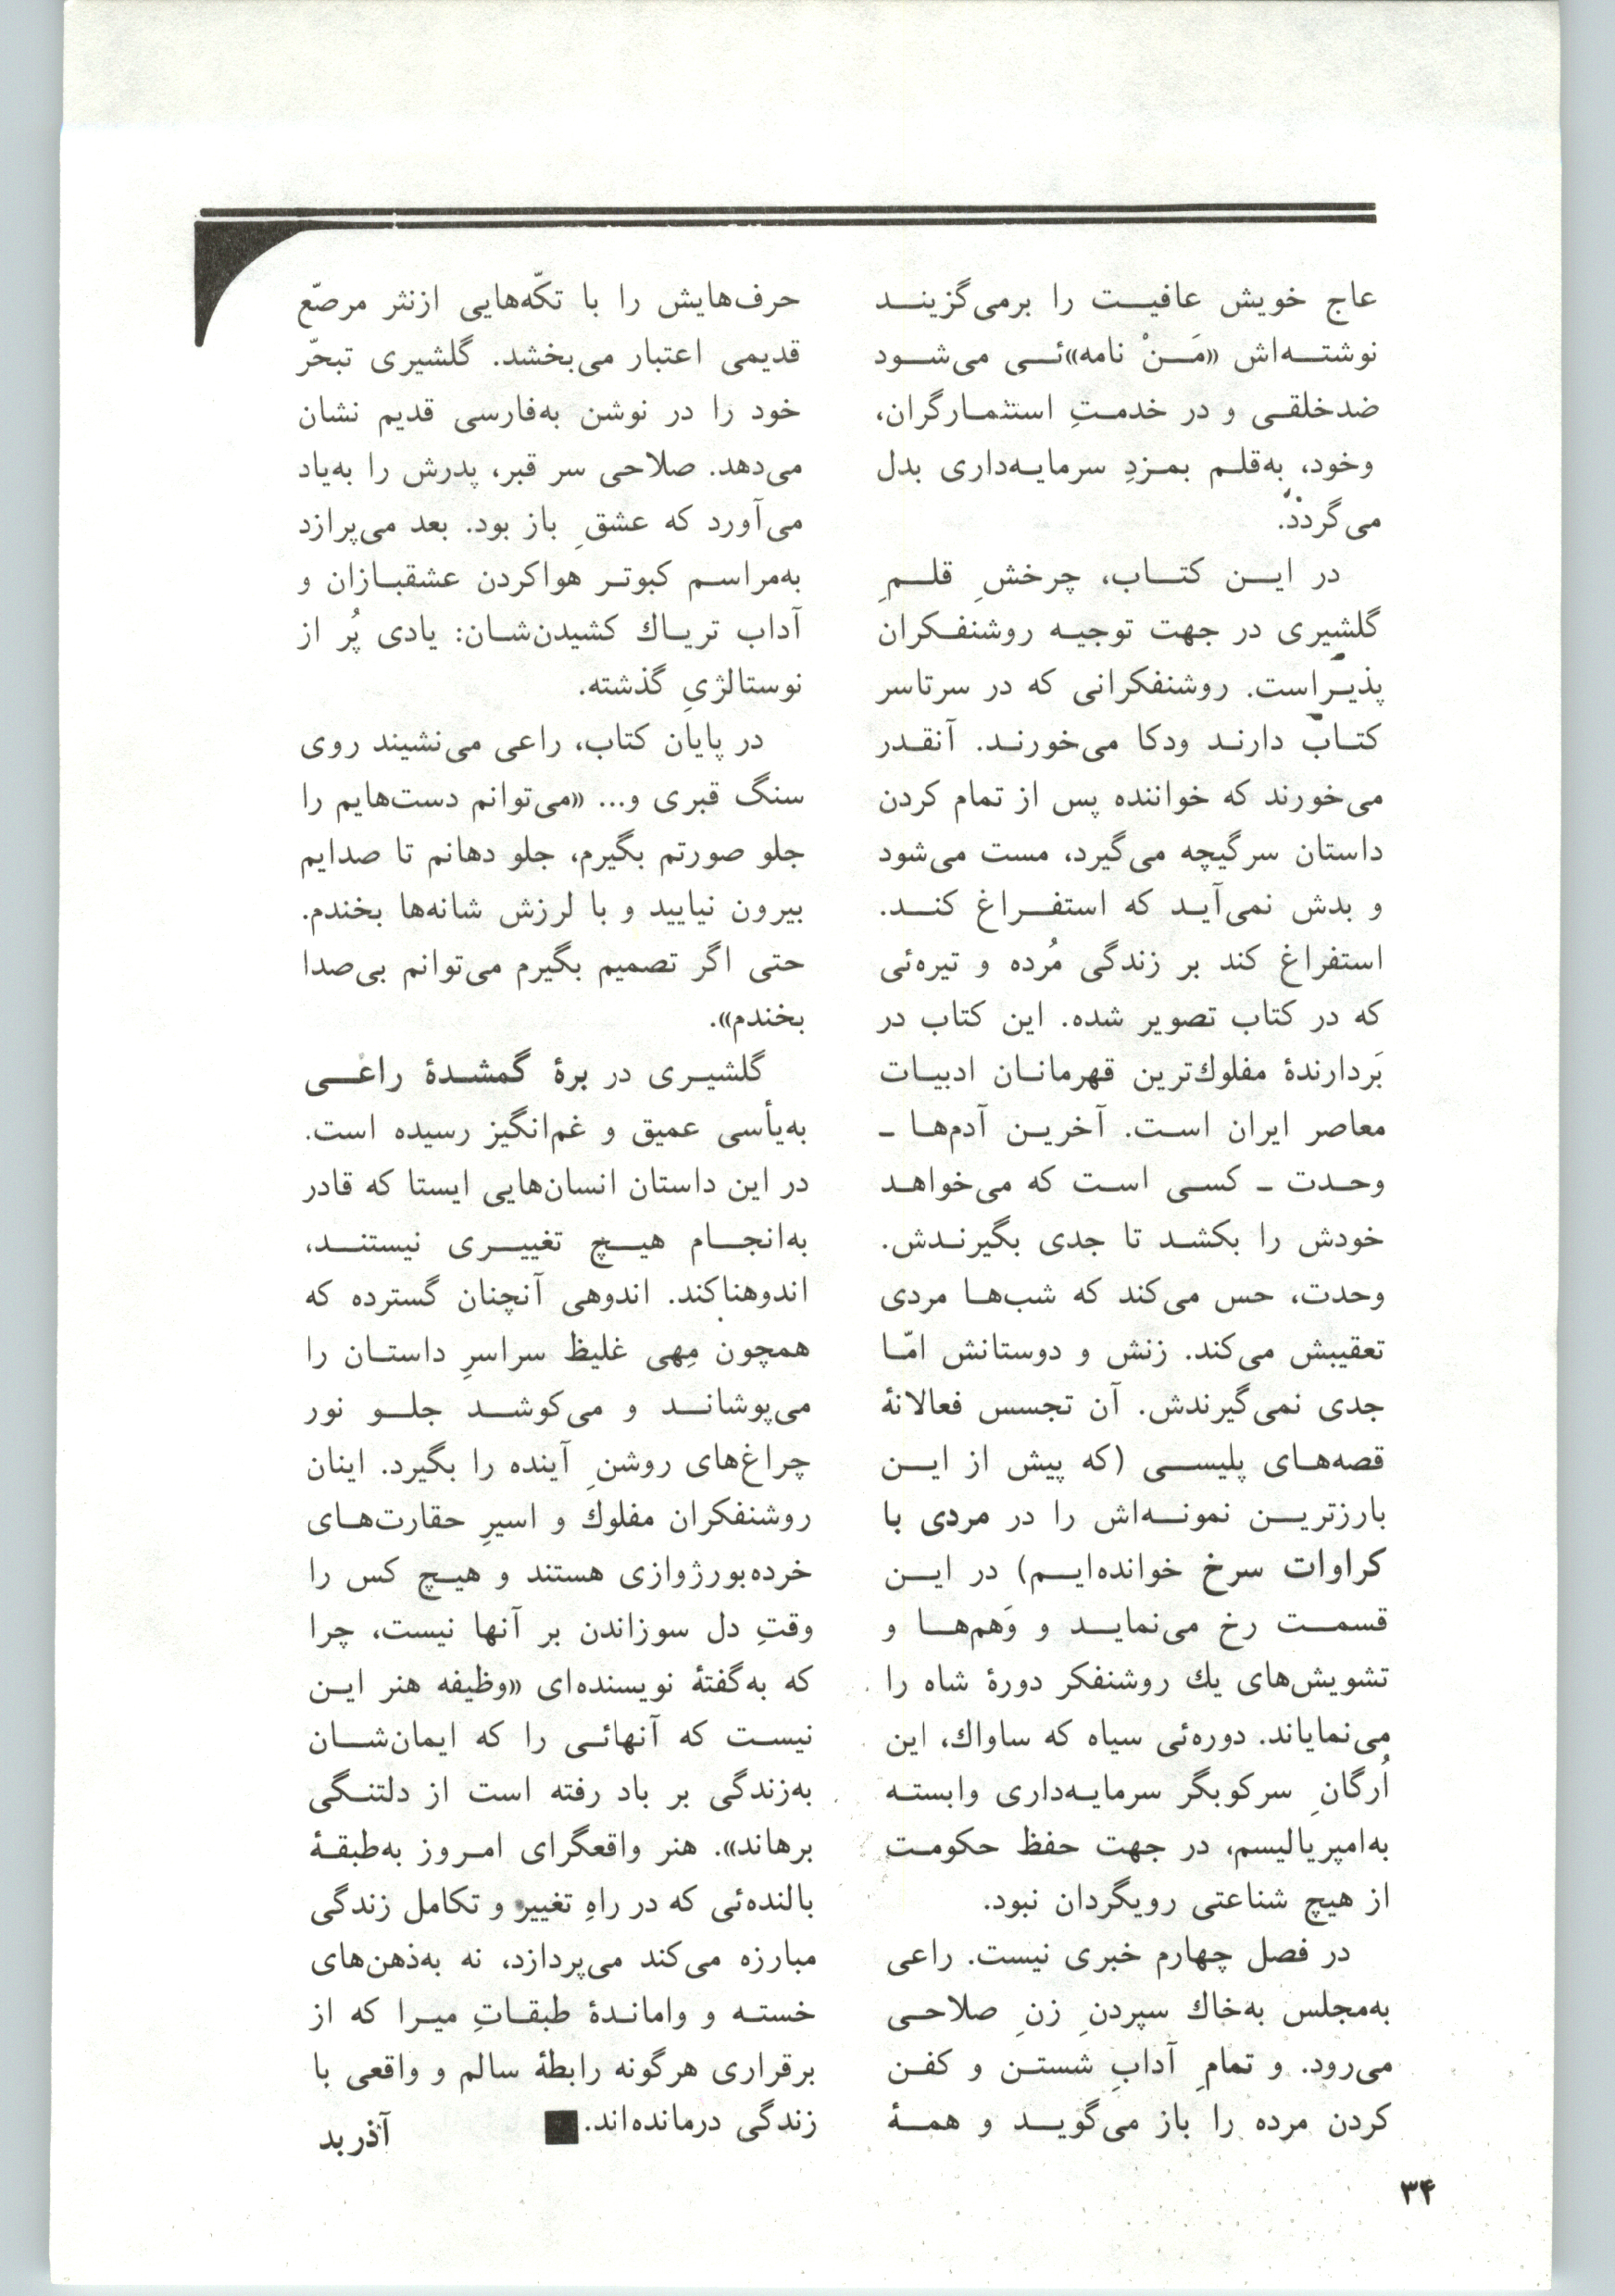 عاج خویش عافیت را برمی‌گزیند
نوشته‌اش «مَنْ نامه»ئی می‌شود
ضدخلقی و در خدمتِ استثمارگران،
وخود، به‌قلم بمزدِ سرمایه‌داری بدل
می‌گردد.
در این کتاب، چرخشِ قلمِ
گلشیری در جهت توجیه روشنفکران
پذیراست. روشنفکرانی که در سرتاسر
کتاب دارند ودکا می‌خورند. آنقدر
می‌خورند که خواننده پس از تمام کردن
داستان سرگیچه می‌گیرد، مست می‌شود
و بدش نمی‌آید که استفراغ کند.
استفراغ کند بر زندگی مُرده و تیره‌ئی
که در کتاب تصویر شده. این کتاب در
بَردارندهٔ مفلوك‌ترین قهرمانان ادبیات
معاصر ایران است. آخرین آدم‌ها ـ
وحدت ـ کسی است که می‌خواهد
خودش را بکشد تا جدی بگیرندش.
وحدت، حس می‌کند که شب‌ها مردی
تعقیبش می‌کند. زنش و دوستانش امّا
جدی نمی‌گیرندش. آن تجسس فعالانهٔ
قصه‌های پلیسی (که پیش از این
بارزترین نمونه‌اش را در مردی با
کراوات سرخ خوانده‌ایم) در این
قسمت رخ می‌نماید و وَهم‌ها و
تشویش‌های یك روشنفکر دورهٔ شاه را
می‌نمایاند. دوره‌ئی سیاه که ساواك، این
اُرگانِ سرکوبگر سرمایه‌داری وابسته
به‌امپریالیسم، در جهت حفظ حکومت
از هیچ شناعتی رویگردان نبود.
در فصل چهارم خبری نیست. راعی
به‌مجلس به‌خاك سپردنِ زنِ صلاحی
می‌رود. و تمامِ آدابِ شستن و کفن
کردن مرده را باز می‌گوید و همهٔ
حرف‌هایش را با تکّه‌هایی ازنثر مرصّع
قدیمی اعتبار می‌بخشد. گلشیری تبحّر
خود را در نوشن به‌فارسی قدیم نشان
می‌دهد. صلاحی سر قبر، پدرش را به‌یاد
می‌آورد که عشقِ باز بود. بعد می‌پرازد
به‌مراسم کبوتر هواکردن عشقبازان و
آداب تریاك کشیدن‌شان: یادی پُر از
نوستالژیِ گذشته.
در پایان کتاب، راعی می‌نشیند روی
سنگ قبری و... «می‌توانم دست‌هایم را
جلو صورتم بگیرم، جلو دهانم تا صدایم
بیرون نیایید و با لرزش شانه‌ها بخندم.
حتی اگر تصمیم بگیرم می‌توانم بی‌صدا
بخندم».
گلشیری در برهٔ گمشدهٔ راعی
به‌یأسی عمیق و غم‌انگیز رسیده است.
در این داستان انسان‌هایی ایستا که قادر
به‌انجام هیچ تغییری نیستند،
اندوهناکند. اندوهی آنچنان گسترده که
همچون مِهی غلیظ سراسرِ داستان را
می‌پوشاند و می‌کوشد جلو نور
چراغ‌های روشنِ آینده را بگیرد. اینان
روشنفکران مفلوك و اسیرِ حقارت‌های
خرده‌بورژوازی هستند و هیچ کس را
وقتِ دل سوزاندن بر آنها نیست، چرا
که به‌گفتهٔ نویسنده‌ای «وظیفه هنر این
نیست که آنهائی را که ایمان‌شان
به‌زندگی بر باد رفته است از دلتنگی
برهاند». هنر واقعگرای امروز به‌طبقهٔ
بالنده‌ئی که در راهِ تغییر و تکامل زندگی
مبارزه می‌کند می‌پردازد، نه به‌ذهن‌های
خسته و واماندهٔ طبقاتِ میرا که از
برقراری هرگونه رابطهٔ سالم و واقعی با
زندگی درمانده‌اند.
آذربد
۳۴